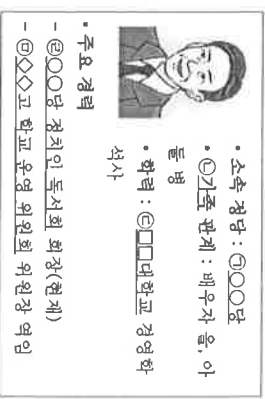 • 소속 정당 : ㉠○○당
• ㉡가족 관계 : 배우자 을, 아
들 병
• 학력 : ㉢□□대학교 경영학
석사
• 주요 경력
- ㉣○○당 정치인 독서회 회장(현재)
- ㉤◇◇고 학교 운영 위원회 위원장 역임